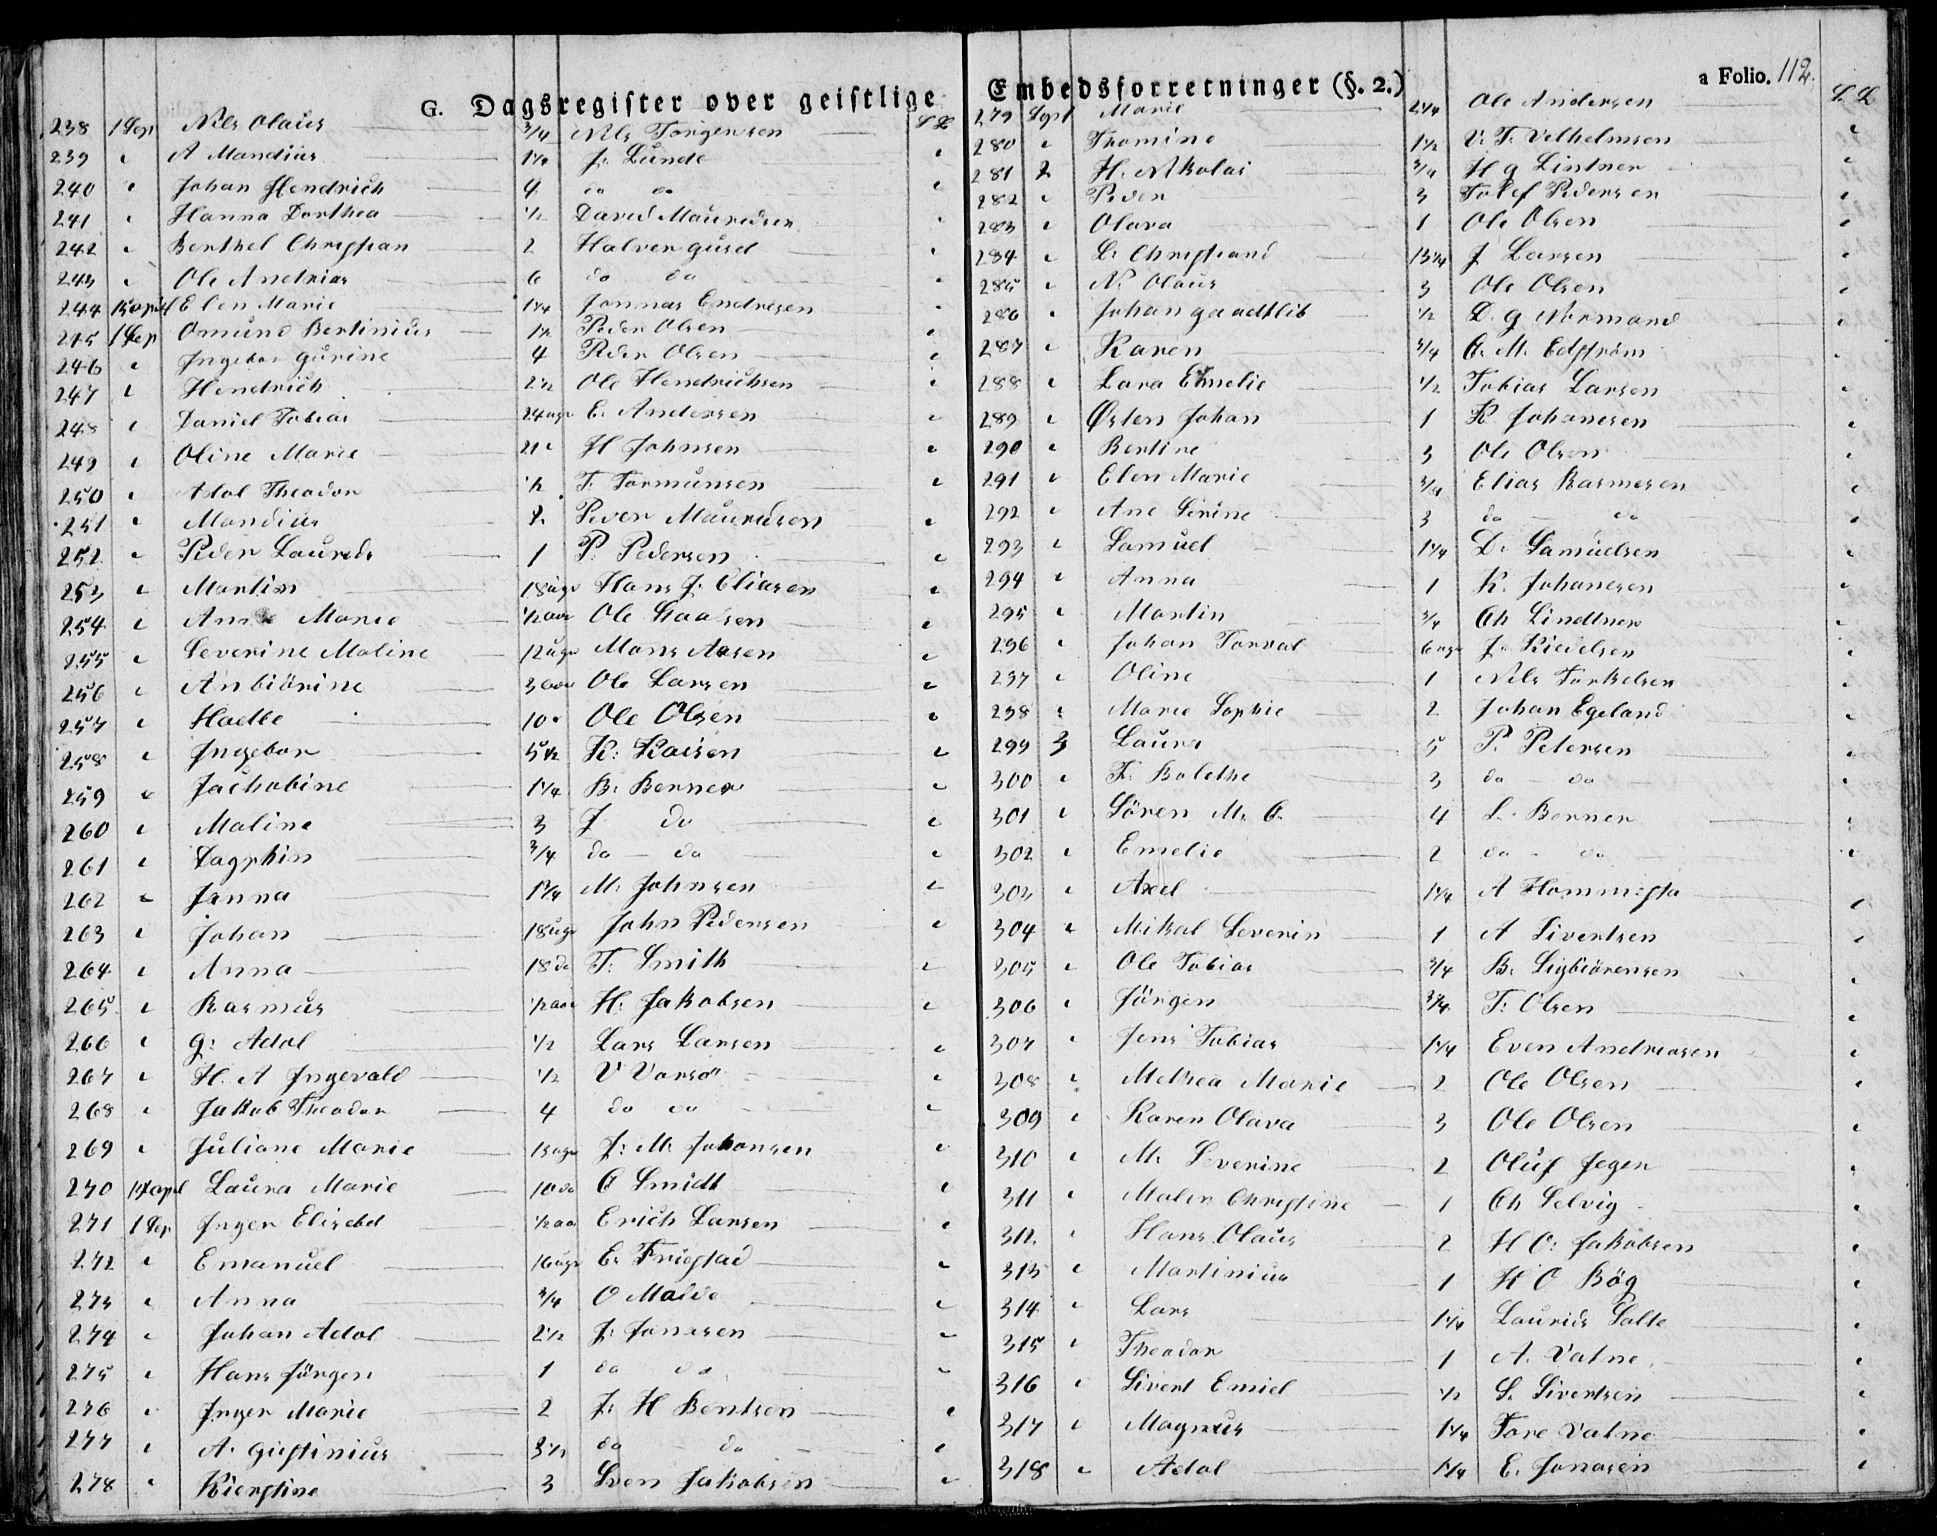 G. Dagsregister over geistlige Embedsforretninger (§. 2.) a Folio. 112.
238 1 Sep Nils Olaus 3/4 Nils Torgersen
239 " A Mandius 1 1/2 J. Lunde "
240 " Johan Hendrich 4 do do "
241 " Hanna Dorthea 1/2 David Mauridsen "
242 " Berthel Christian 2 Halver "
243 " Ole Andrias 6 do do "
244 Elen Marie 1 1/4 Jonnas Endresen "
245 1 Sep Omund Bertinius 1 1/2 Peder Olsen "
246 " Ingebor Gurine 4 Peder Olsen "
247 " Hendrich 2 1/2 Ole Hendrichsen "
248 " Daniel Tobias 24 uger E. Andersen "
249 " Oline Marie 21 " H Johnsen "
250 " Adol Theodor 1/2 T. Tormunsen "
251 " Mandius Peder Mauridsen "
252 " Peder Laurids 1 P. Pedersen "
253 " Martin 18 uger Hans J. Eliasen "
254 " Marie 1/2 aar Ole "
255 " Severine Maline 12 uger Mons Aasen "
256 " Anbiörine 3 aar Ole Larsen "
257 " Haette 10 " Ole Olsen "
258 " Ingebor 5 1/2 K. Kaisen "
259 " Jachobine 1 1/4 B. Berner "
260 " Maline 3 J do "
261 " Dagphin 3/4 do do "
262 " Janna 1 3/4 M. Johnsen "
263 " Johan 18 uger John Pedersen "
264 " Anna 18 do T. Smith "
265 " Rasmus 1/2 aar H. Jakobsen "
266 " G. Adol 1/2 Lars Larsen "
267 " H. A Ingevald 1/2 V "
268 " Jakob Theodor 4 do do "
269 " Juliane Marie 13 uger J. M. Johansen "
270 17 apl Laura Marie 10 do Smidt "
271 1 Sep Inger Elisebet 1/2 aar Erich Larsen "
272 " Emanuel 16 uger E. Friestad "
273 " Anna 3/4 O Malde "
274 " Johan Adol 2 1/2 J. Jonasen "
275 " Hans Jörgen 1 do do "
276 " Inger Marie 2 J. H Bentsen "
277 " A. Gustinius 3 1/2 do do "
278 " Kierstine 3 Sven Jakobsen "
279 Sept Marie 2 1/4 Ole Andersen
280 " Thomine 1 1/2 V. T. Velhelmsen "
281 2 H. Nikolai 3/4 H G Lintner "
282 " Peder 3 Tolef Pedersen "
283 " Olava 1 Ole Olsen "
284 " L. Christiand 1 3/4 J Larsen "
285 " N. Olaus 3 Ole Olsen "
286 " Johan Gaadtlib 1/2 D. G Normand "
287 " Karen 3/4 M. Edström "
288 " Lava Emelie 1/2 Tobias Larsen "
289 " Østen Johan 1 K Johanesen "
290 " Bertine 3 Ole Olsen "
291 " Elen Marie 3/4 Elias Rasmesen "
292 " Ane Sirine 3 do do "
293 " Samuel 1 1/4 D. Samuelsen "
294 " Anna 1 K. Johanesen "
295 " Martin 3/4 Ch Lindtner "
296 " Johan Torval 6 uger J. Kiedelsen "
297 " Oline 1 Nils Torkelsen "
298 " Marie Sophie 2 Johan Egeland "
299 3 Laura 5 P. Petersen "
300 " T. Bolethe 3 do do "
301 " Sören M. C. 4 L. Berner "
302 " Emelie 2 do do "
303 " Axel 1 1/4 A Hommesta "
304 " Mikal Severin 1 A Sivertsen "
305 " Ole Tobias 3/4 B. Sigbiörensen "
306 " Jörgen 3/4 T. Olsen "
307 " Jens Tobias 1 1/4 Even Andreasen "
308 " Methea Marie 2 Ole Olsen "
309 " Karen Olava 3 Ole Olsen "
310 " M. Severine 2 Oluf Jeger "
311 " Malin Christine 1 Ch Selvig "
312 " Hans Olaus 2 H O. Jakobsen "
313 " Martinius 1 H O Bög "
314 " Lars 1 1/4 Laurids Salte "
315 " Theodor 1 A. Vatne "
316 " Sivert Emiel 1/2 S. Sivertsen "
317 " Magnus 1 1/4 Tore Vatne "
318 " Adol 1 1/4 E. Jonasen "